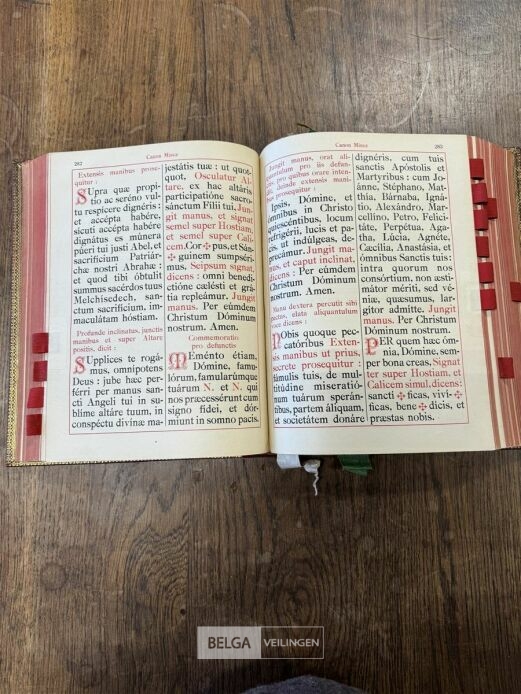 282
Canon Missæ
Extensis manibus prose-
quitur :
SUpra quæ propi-
tio ac seréno vul-
tu respícere dignéris :
et accépta habére,
sícuti accépta habére
dignátus es múnera
púeri tui justi Abel, et
sacrifícium Patriár-
chæ nostri Abrahæ :
et quod tibi óbtulit
summus sacérdos tuus
Melchísedech, san-
ctum sacrifícium, im-
maculátam hóstiam.
Profunde inclinatus, junctis
manibus et super Altare
positis, dicit :
SUpplices te rogá-
mus, omnípotens
Deus : jube hæc per-
férri per manus san-
cti Angeli tui in su-
blíme altáre tuum, in
conspéctu divínæ ma-
jestátis tuæ : ut quot-
quot, Osculatur Al-
tare, ex hac altáris
participatióne sacro-
sánctum Fílii tui, Jun-
git manus, et signat
semel super Hostiam,
et semel super Cali-
cem, Cor✠pus, et Sán-
✠guinem sumpséri-
mus, Seipsum signat,
dicens : omni benedi-
ctióne cælésti et grá-
tia repleámur. Jungit
manus. Per eúmdem
Christum Dóminum
nostrum. Amen.
Commemoratio
pro defunctis
MEménto étiam,
Dómine, famu-
lórum, famularúmque
tuárum N. et N. qui
nos præcessérunt cum
signo fídei, et dór-
miunt in somno pacis.
Canon Missæ
283
Jungit manus, orat ali-
quantulum pro iis defun-
ctis, pro quibus orare inten-
dit, deinde extensis mani-
bus prosequitur :
Ipsis, Dómine, et
ómnibus in Christo
quiescéntibus, locum
refrigérii, lucis et pa-
cis, ut indúlgeas, de-
precámur. Jungit ma-
nus, et caput inclinat,
dicens : Per eúmdem
Christum Dóminum
nostrum. Amen.
Manu dextera percutit sibi
pectus, elata aliquantulum
voce dicens :
NObis quoque pec-
catóribus Exten-
sis manibus ut prius,
secrete prosequitur :
fámulis tuis, de mul-
titúdine miseratió-
num tuárum sperán-
tibus, partem áliquam,
et societátem donáre
dignéris, cum tuis
sanctis Apóstolis et
Martýribus : cum Jo-
ánne, Stéphano, Mat-
thía, Bárnaba, Igná-
tio, Alexándro, Mar-
cellíno, Petro, Felici-
táte, Perpétua, Aga-
tha, Lúcia, Agnéte,
Cæcília, Anastásia, et
ómnibus Sanctis tuis :
intra quorum nos
consórtium, non æsti-
mátor mériti, sed vé-
niæ, quæsumus, lar-
gítor admítte. Jungit
manus. Per Christum
Dóminum nostrum.
PER quem hæc óm-
nia, Dómine, sem-
per bona creas, Signat
ter super Hostiam, et
Calicem simul, dicens:
sanctí✠ficas, viví✠-
ficas, bene✠dícis, et
præstas nobis.
BELGA VEILINGEN